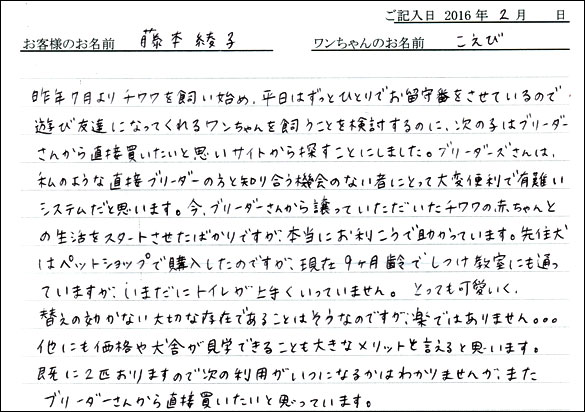 ご記入日 2016 年 2 月 日
お客様のお名前 藤本綾子 ワンちゃんのお名前 こえび
昨年7月よりチワワを飼い始め、平日はずっとひとりでお留守番をさせているので
遊び友達になってくれるワンちゃんを飼うことを検討するのに、次の子はブリーダー
さんから直接買いたいと思いサイトから探すことにしました。ブリーダーズさんは、
私のような直接ブリーダーの方と知り合う機会のない者にとって大変便利で有難い
システムだと思います。今、ブリーダーさんから譲っていただいたチワワの赤ちゃんと
の生活をスタートさせたばかりですが、本当にお利こうで助かっています。先住犬
はペットショップで購入したのですが、現在9ヶ月齢でしつけ教室にも通っ
ていますが、いまだにトイレが上手くいっていません。とっても可愛いく、
替えの効かない大切な存在であることはそうなのですが、楽ではありません。。。
他にも価格や犬舎が見学できることも大きなメリットと言えると思います。
既に2匹おりますので次の利用がいつになるかはわかりませんが、また
ブリーダーさんから直接買いたいと思っています。